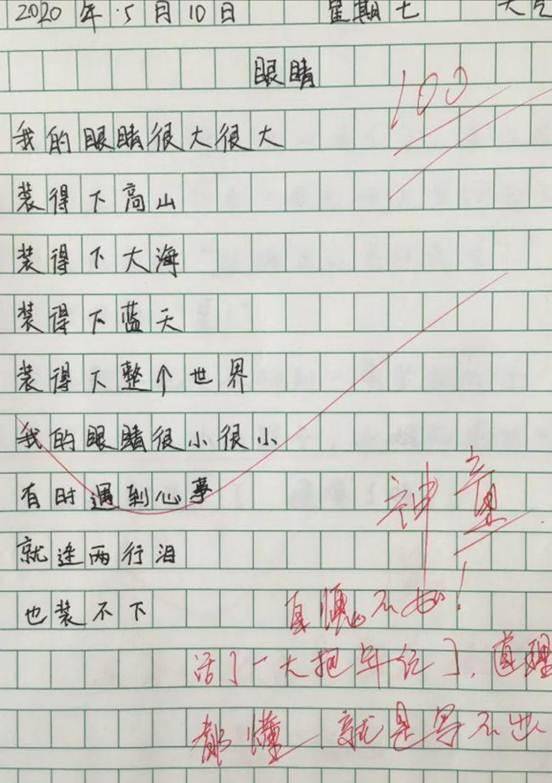 2020年5月10日 星期七 天气
眼睛
100
我的眼睛很大很大
装得下高山
装得下大海
装得下蓝天
装得下整个世界
我的眼睛很小很小
有时遇到心事
就连两行泪
也装不下
神童
自愧不如!
活了一大把年纪了,道理
都懂 就是写不出